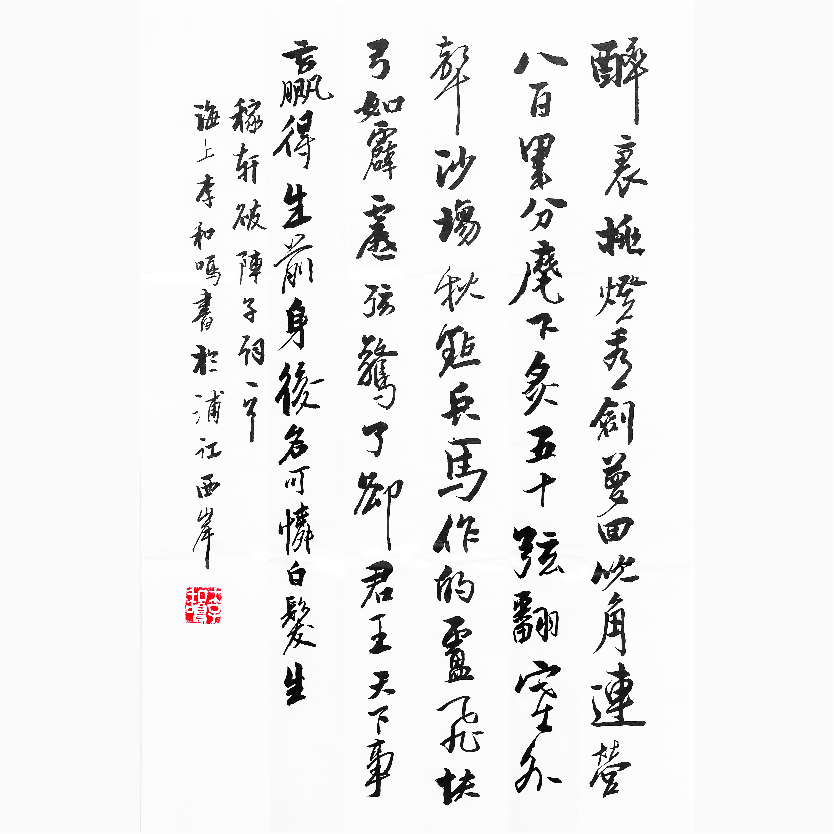 醉裏挑燈看劍夢回吹角連營
八百里分麾下炙五十弦翻塞外
聲沙場秋點兵馬作的盧飛快
弓如霹靂弦驚了卻君王天下事
贏得生前身後名可憐白髮生
稼軒破陣子詞一首
海上李和鳴書於浦江西岸